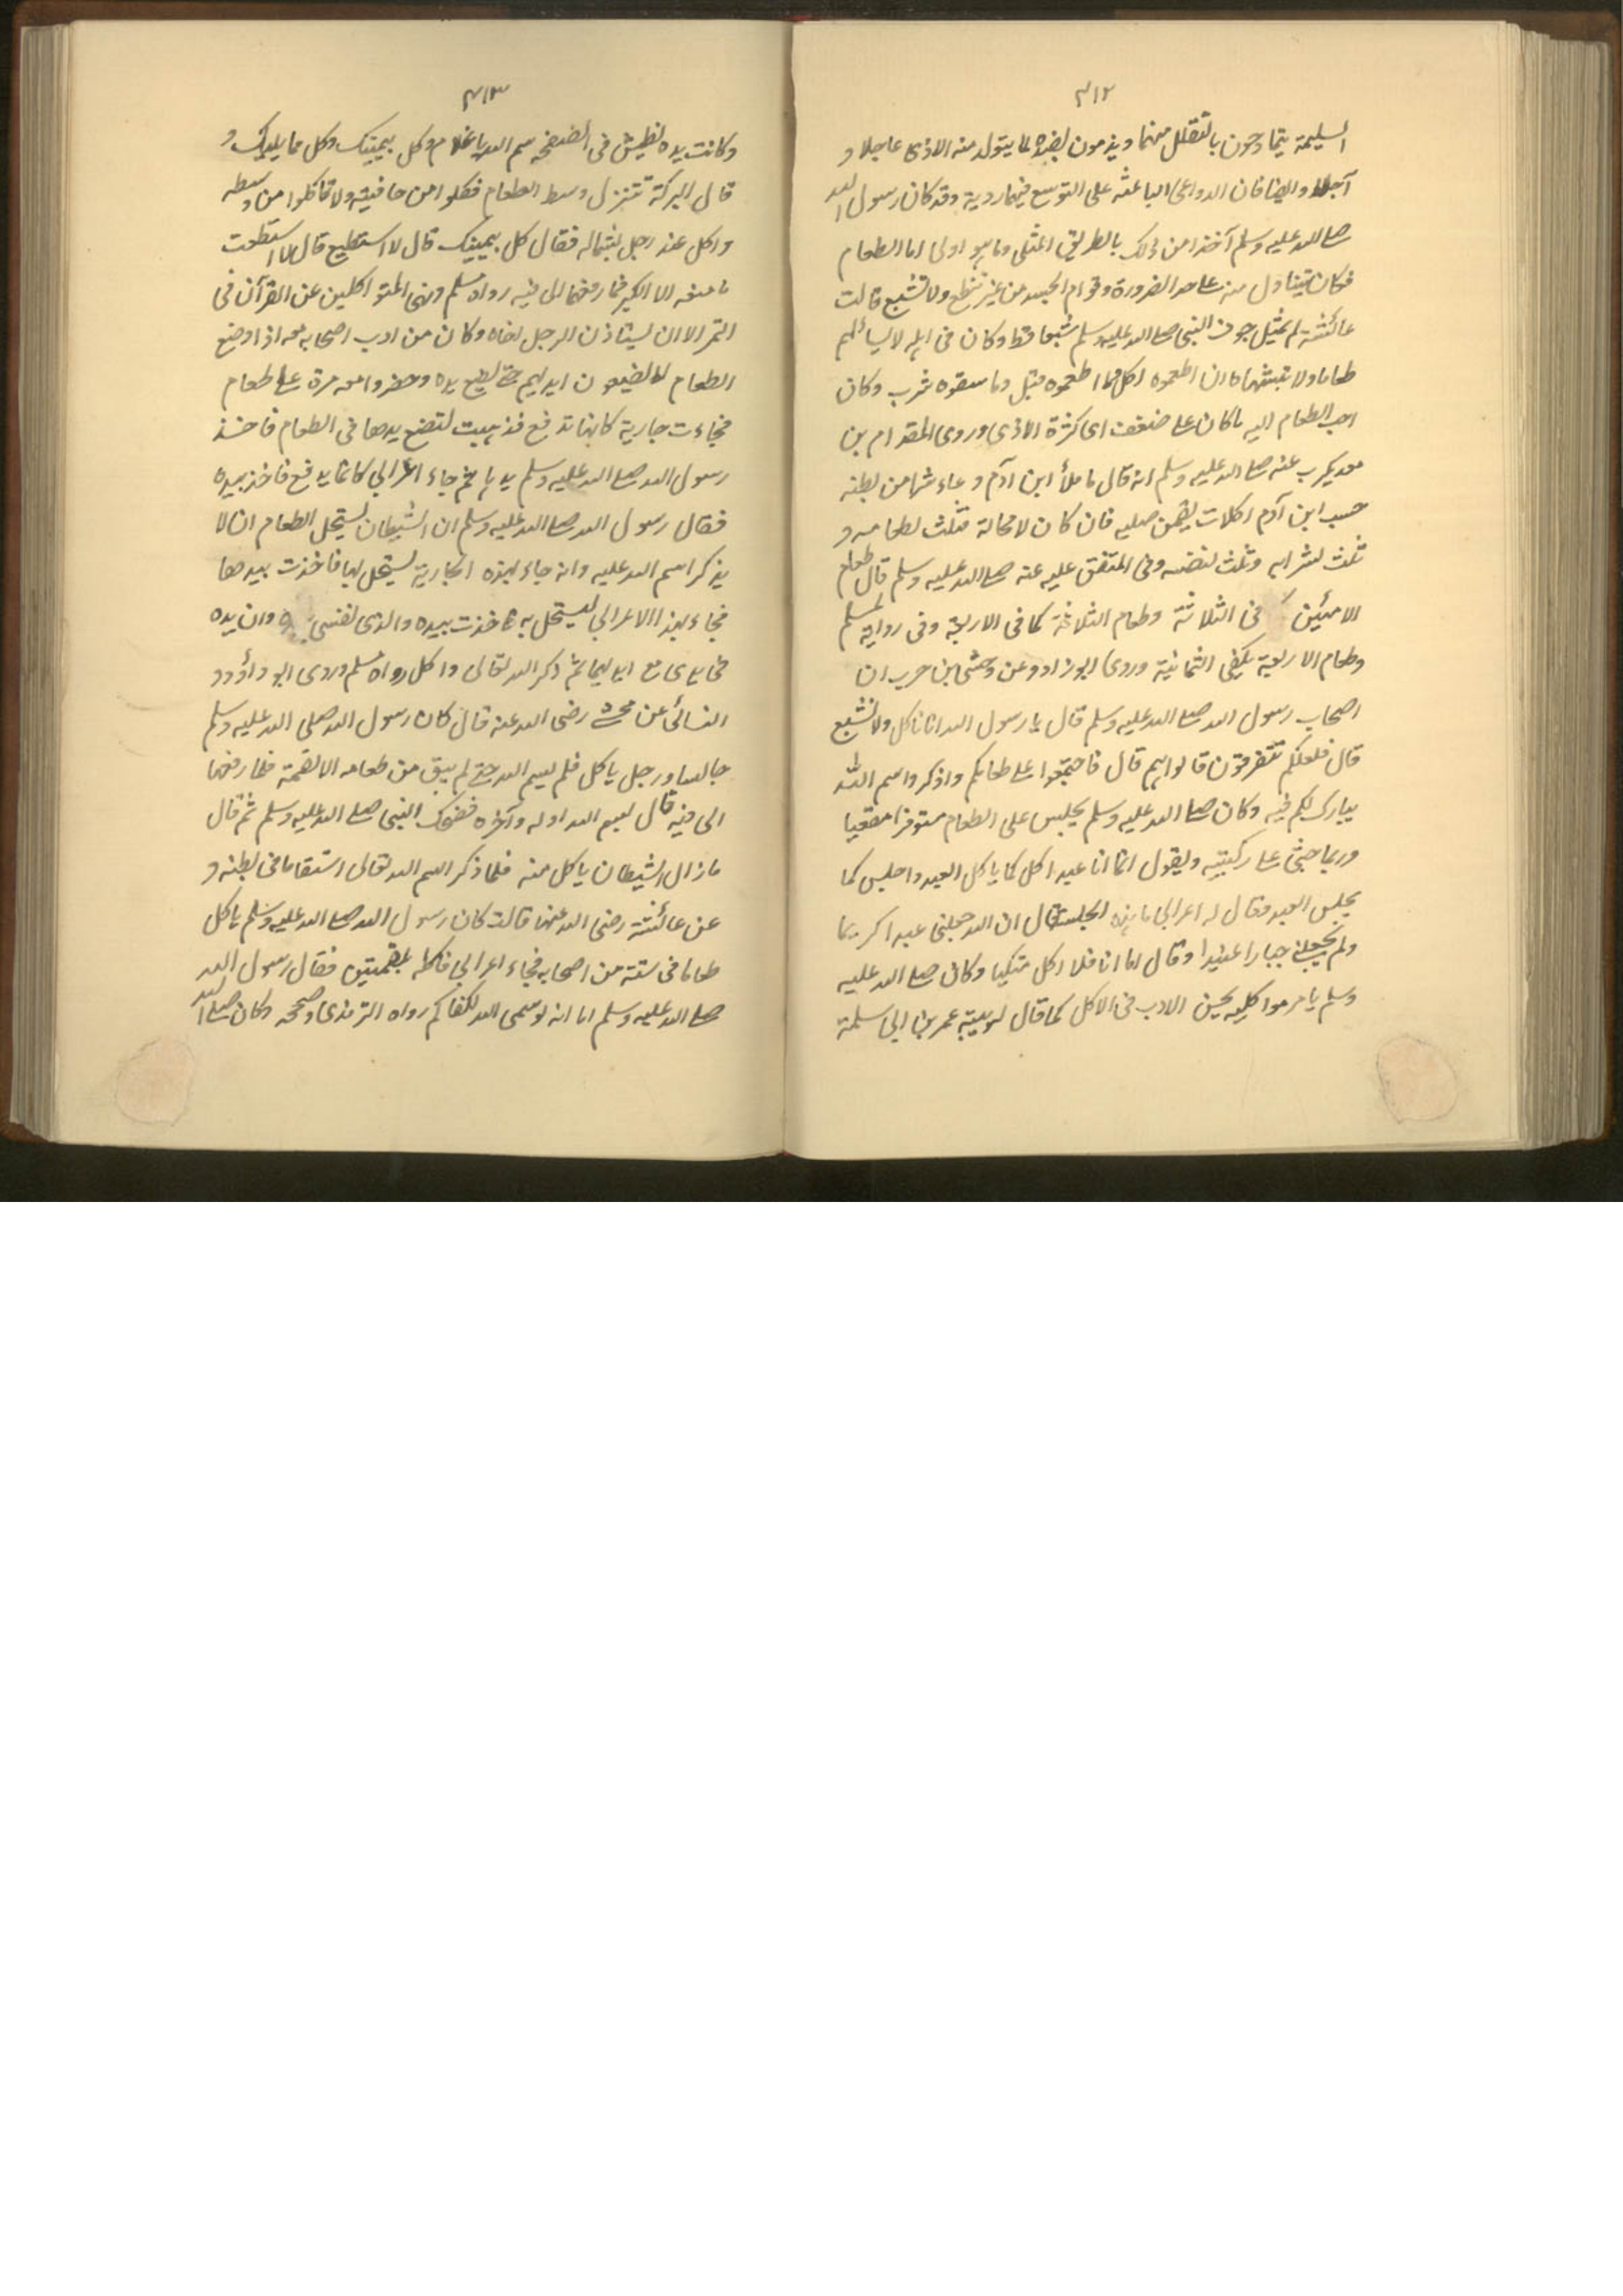 ٣١٢
السليمة يتمادحون بالتقلل منهما ويذمون بضده لما يتولد منه الاذى عاجلا و
آجلا وايضا فان الدواعى الباعثه على التوسع فيهما ردية وقد كان رسول الله
صلے الله عليه وسلم آخذا من ذلك بالطريق المثلى وما هو اولى اما الطعام
فكان يتناول منه علے حد الضرورة وقوام الجسد من غير تنطع ولا تشبع قالت
عائشة لم يمتل جوف النبى صلے الله عليه وسلم شبعا قط وكان فى اهله لا يسألهم
طعاما ولا يتشهاه ان اطعموه اكل وما اطعموه قبل وما سقوه شرب وكان
احب الطعام اليه ما كان علے ضفف اى كثرة الايدى وروى المقدام بن
معديكرب عنه صلے الله عليه وسلم انه قال ما ملأ ابن آدم وعاء شرا من بطنه
حسب ابن آدم اكلات يقمن صلبه فان كان لا محالة فثلث لطعامه و
ثلث لشرابه وثلث لنفسه وفى المتفق عليه عنه صلے الله عليه وسلم قال طعام
الاثنين كافى الثلاثة وطعام الثلاثة كافى الاربعة وفى رواية لمسلم
وطعام الاربعة يكفى الثمانية وروى ابو داود عن وحشى بن حرب ان
اصحاب رسول الله صلے الله عليه وسلم قال يا رسول الله انا ناكل ولا نشبع
قال فلعلكم تتفرقون قالوا نعم قال فاجتمعوا علے طعامكم واذكروا اسم الله
يبارك لكم فيه وكان صلے الله عليه وسلم يجلس على الطعام مستوفزا مقعيا
وربما جثى علے ركبتيه ويقول انما انا عبد اكل كما ياكل العبد واجلس كما
يجلس العبد فقال له اعرابى ما هذه الجلسة قال ان الله جعلنى عبدا كريما
ولم يجعلنى جبارا عنيدا وقال اما انا فلا اكل متكيا وكان صلے الله عليه
وسلم يامر مواكليه بحسن الادب فى الاكل كما قال لربيبه عمر بن ابى سلمة
٣١٣
وكانت يده تطيش فى الصفحه سم الله يا غلام وكل بيمينك وكل مما يليك و
قال البركة تتنزل وسط الطعام فكلوا من حافيته ولا تاكلوا من وسطه
واكل عنده رجل بشماله فقال كل بيمينك قال لا استطيع قال لا استطعت
ما منعه الا الكبر فما رفعها الى فيه رواه مسلم ونهى المتواكلين عن القرآن فى
التمر الا ان يستاذن الرجل اخاه وكان من ادب اصحابه معه اذا وضع
الطعام لا يضيعون ايديهم حتے يضع يده وحضروا معه مرة علے طعام
فجاءت جارية كانها تدفع فذهبت لتضع يدها فى الطعام فاخذ
رسول الله صلے الله عليه وسلم يدها ثم جاء اعرابى كانما يدفع فاخذ بيده
فقال رسول الله صلے الله عليه وسلم ان الشيطان يستحل الطعام ان لا
يذكر اسم الله عليه وانه جاء بهذه الجارية ليستحل بها فاخذت بيدها
فجاء بهذا الاعرابى ليستحل به فاخذت بيده والذى نفسى بيده ان يده
فى يدى مع ايديهما ثم ذكر الله تعالى واكل رواه مسلم وروى ابو داؤد و
النسائى عن رضى الله عنه قال كان رسول الله صلى الله عليه وسلم
جالسا ورجل ياكل فلم يسم الله حتے لم يبق من طعامه الا لقمة فلما رفعها
الى فيه قال بسم الله اوله وآخره فضحك النبى صلے الله عليه وسلم ثم قال
ما زال الشيطان ياكل معه فلما ذكر اسم الله تعالى استقاما فى بطنه و
عن عائشة رضى الله عنها قالت كان رسول الله صلے الله عليه وسلم ياكل
طعاما فى ستة من اصحابه فجاء اعرابى فاكله بلقمتين فقال رسول الله
صلے الله عليه وسلم اما انه لو سمى الله لكفاكم رواه الترمذى وصححه وكان صلے الله